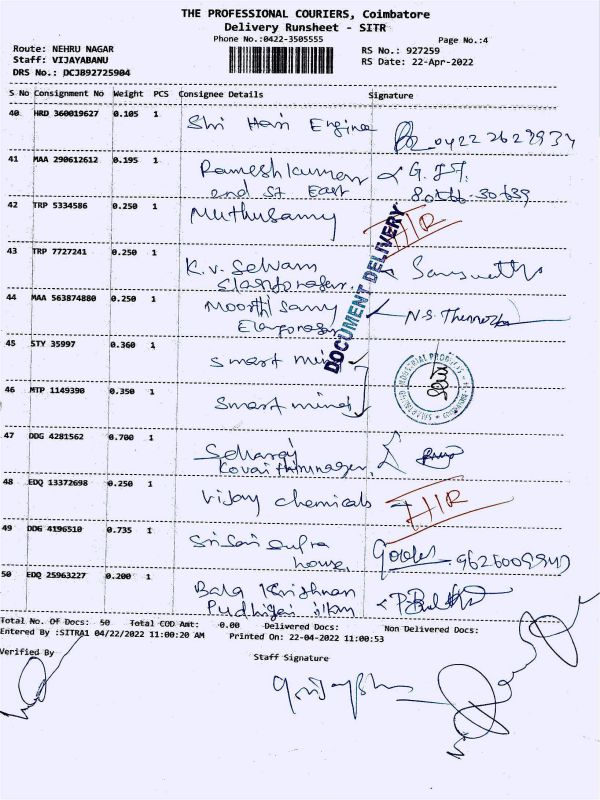 THE PROFESSIONAL COURIERS, Coimbatore
Delivery Runsheet - SITR
Phone No.:0422-3505555
Page No.:4
Route: NEHRU NAGAR
RS No.: 927259
Staff: VIJAYABANU
RS Date: 22-Apr-2022
DRS No.: DCJ892725904
S No Consignment No Weight PCS Consignee Details Signature
40 HRD 360019627 0.105 1 Shri Hari Enginee 0422 2629934
41 MAA 290612612 0.195 1 Rameshkumar
2nd St East 80566-30639
42 TRP 5334586 0.250 1 Muthusamy
43 TRP 7727241 0.250 1 K.V. Selvam
44 MAA 563874880 0.250 1 Moorthi Samy
DOCUMENT DELIVERY
45 STY 35997 0.360 1 Smart mind
46 MTP 1149390 0.350 1 Smart minds
47 DDG 4281562 0.700 1
48 EDQ 13372698 0.250 1 Vijay chemicals
49 DDG 4196510 0.735 1 Sri Sai
house
50 EDQ 25963227 0.200 1 Bala Krishnan
Total No. Of Docs: 50 Total COD Amt: 0.00 Delivered Docs: Non Delivered Docs:
Entered By :SITRA1 04/22/2022 11:00:20 AM Printed On: 22-04-2022 11:00:53
Verified By Staff Signature